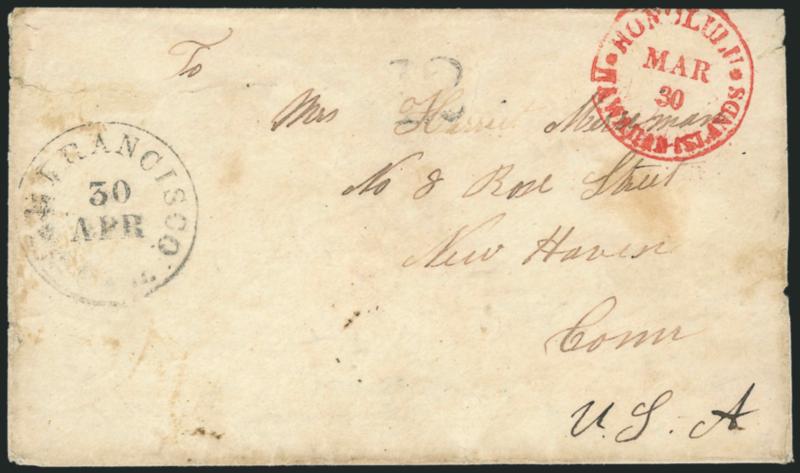 HONOLULU
MAR
30
HAWAIIAN-ISLANDS
To
12
Mrs Harriet Merriman
No 8 Rose Street
New Haven
Conn
U. S. A
SAN FRANCISCO
30
APR